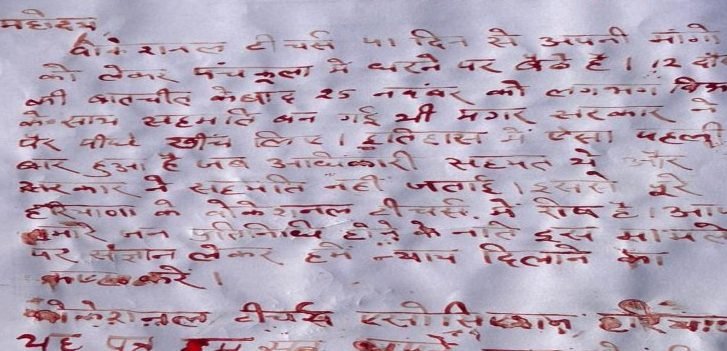 महोदय
वोकेशनल टीचर्स 41 दिन से अपनी मांगो
को लेकर पंचकूला में धरने पर बैठे हैं। 12 दौर
की बातचीत के बाद 25 नवंबर को लगभग वित्त
के साथ सहमति बन गई थी मगर सरकार ने
पैर पीछे खींच लिए। इतिहास में ऐसा पहली
बार हुआ है जब अधिकारी सहमत थे और
सरकार ने सहमति नहीं जताई। इससे पूरे
हरियाणा के वोकेशनल टीचर्स में रोष है। आप
हमारे जन प्रतिनिधि होने के नाते इस मामले
पर संज्ञान लेकर हमें न्याय दिलाने का
कष्ट करें।
वोकेशनल टीचर्स एसोसिएशन हरियाणा
यह पत्र हम सब